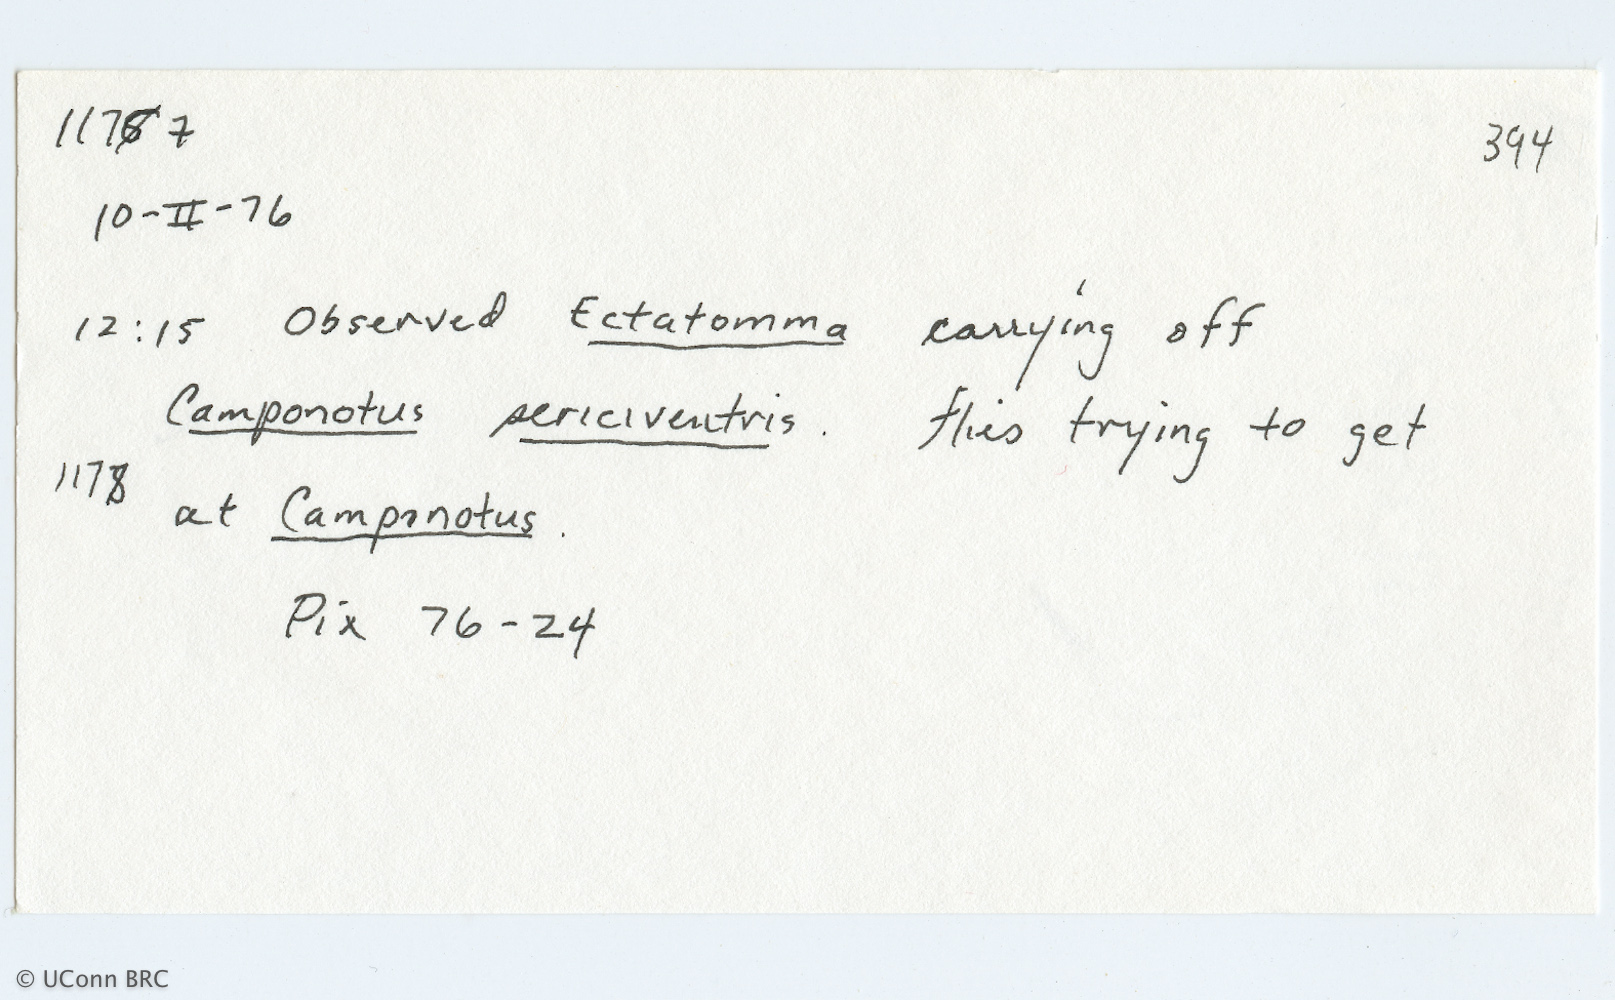 1177
394
10-II-76
12:15 Observed Ectatomma carrying off
Camponotus sericiventris. flies trying to get
1178
at Camponotus.
Pix 76-24
© UConn BRC